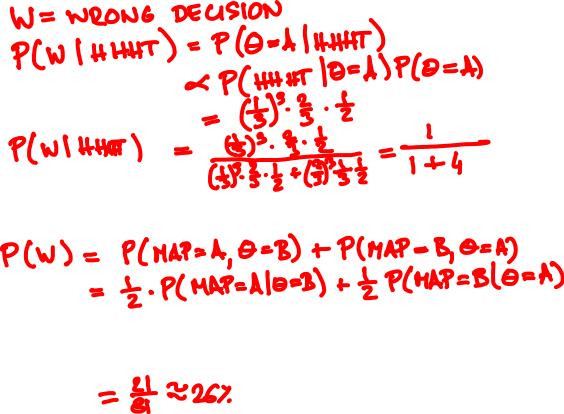 W = WRONG DECISION
P(W | HHHT) = P(Θ=A | HHHT)
∝ P(HHHT | Θ=A) P(Θ=A)
= (1/3)³ · 2/3 · 1/2
P(W | HHHT) = ((1/3)³ · 2/3 · 1/2) / ((1/3)³ · 2/3 · 1/2 + (2/3)³ 1/3 1/2) = 1 / (1 + 4)
P(W) = P(MAP=A, Θ=B) + P(MAP=B, Θ=A)
= 1/2 · P(MAP=A|Θ=B) + 1/2 P(MAP=B|Θ=A)
= 21/81 ≈ 26%